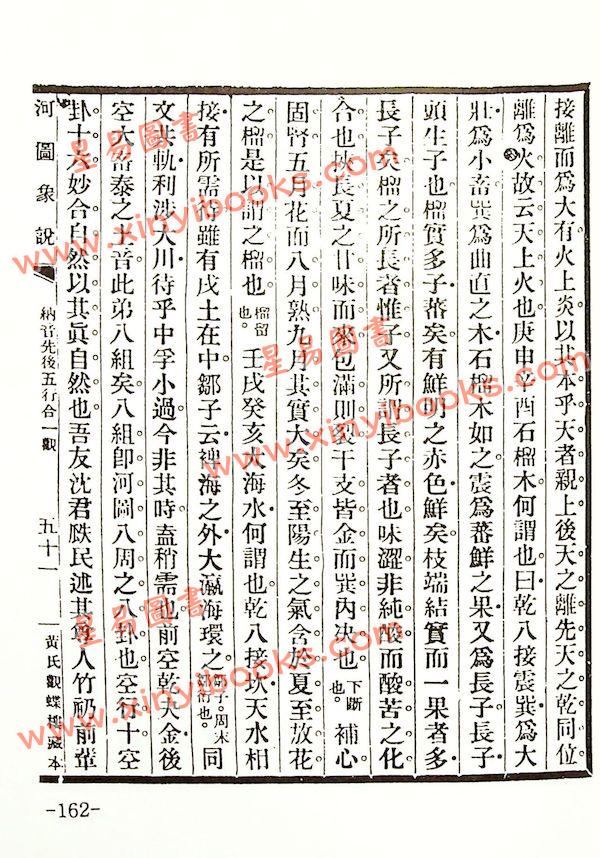 接離而為大有火上炎以其本乎天者親上後天之離先天之乾同位
離為火故云天上火也庚申辛酉石榴木何謂也曰乾八接震巽為大
壯為小畜巽為曲直之木石榴木如之震為蕃鮮之果又為長子長子
頭生子也榴實多子蕃矣有鮮明之赤色鮮矣枝端結實而一果者多
長子矣榴之所長者惟子又所謂長子者也味澀非純酸而酸苦之化
合也故長夏之甘味而來包滿則裂干支皆金而巽內決也下斷也。補心
固腎五月花而八月熟九月其實大矣冬至陽生之氣含於夏至放花
之榴是以謂之榴也榴留也。壬戌癸亥大海水何謂也乾八接坎天水相
接有所需待雖有戌土在中鄒子云裨海之外大瀛海環之鄒子周末鄒衍也。同
文共軌利涉大川待乎中孚小過今非其時盍稍需也前空乾九金後
空大畜泰之土音此弟八組矣八組卽河圖八周之八卦也空行十空
卦十六妙合自然以其眞自然也吾友沈君瓞民述其尊人竹礽前輩
河圖象說
納音先後五行合一觀
五十一
黃氏觀蝶樓藏本
-162-
星易圖書
www.xinyibooks.com
星易圖書
www.xinyibooks.com
星易圖書
www.xinyibooks.com